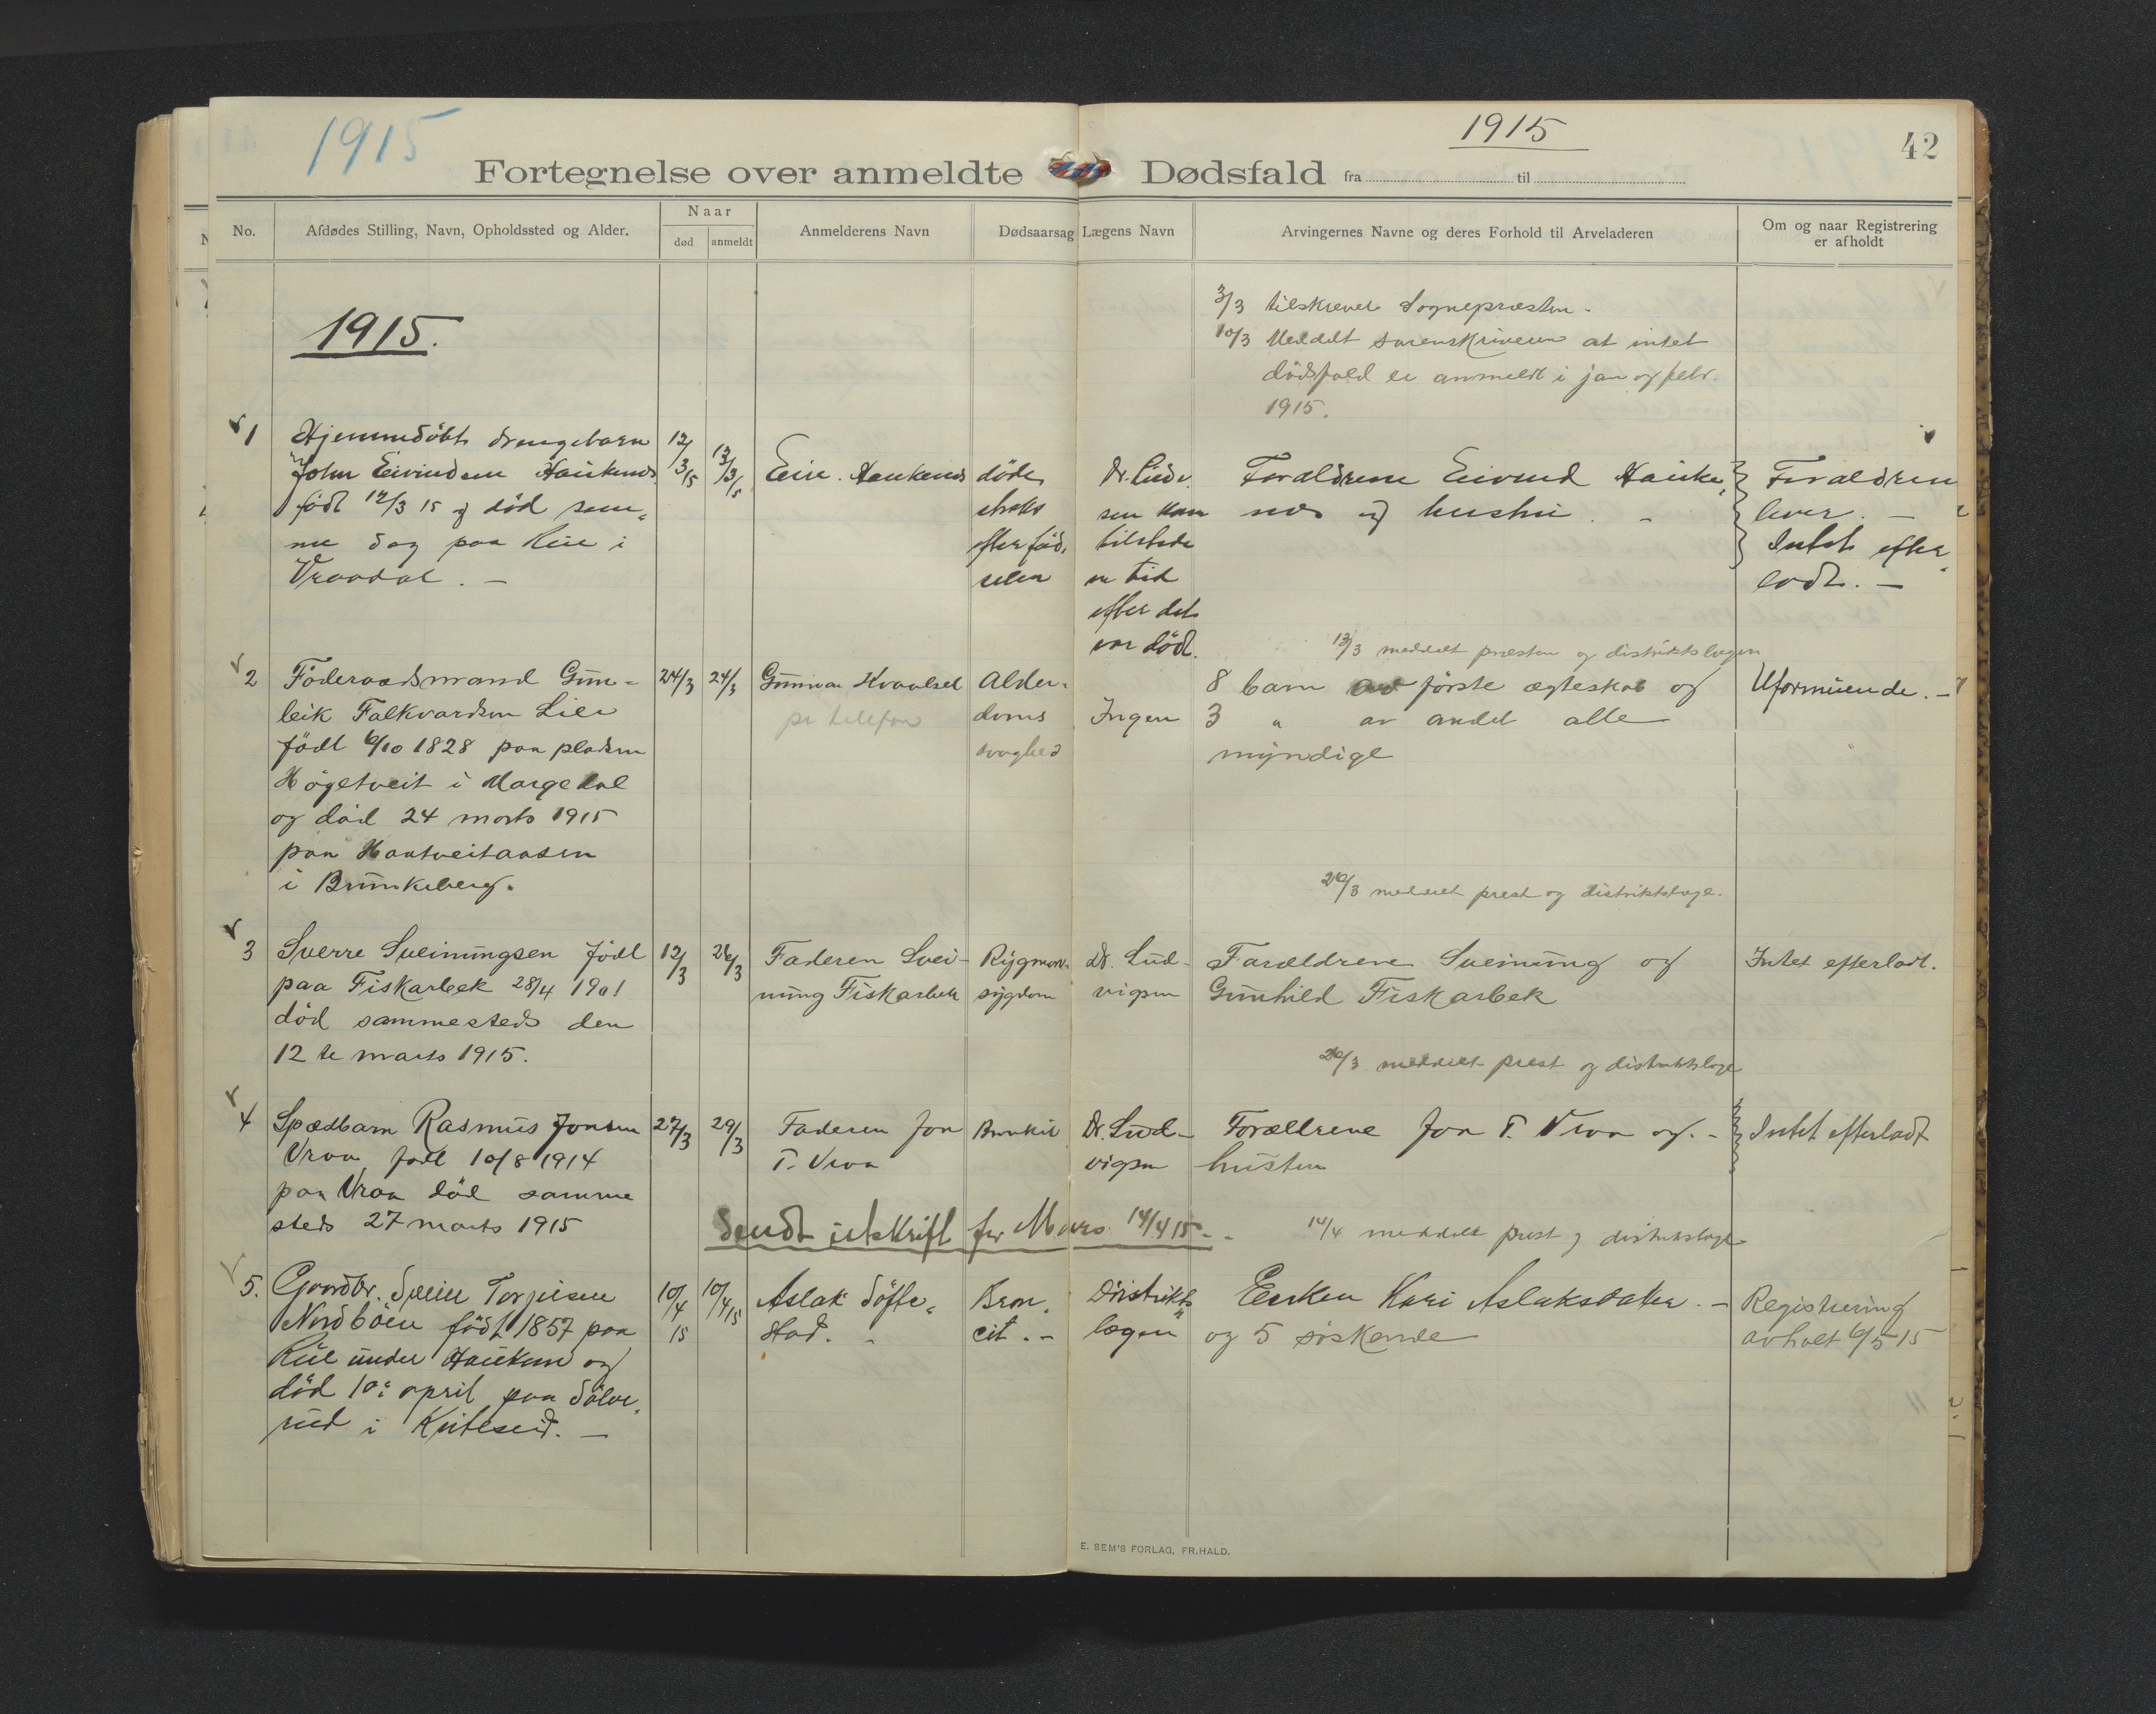 1915
1915
42
Fortegnelse over anmeldte Dødsfald fra til
No.
Afdødes Stilling, Navn, Opholdssted og Alder.
Naar
død
anmeldt
Anmelderens Navn
Dødsaarsag
Lægens Navn
Arvingernes Navne og deres Forhold til Arveladeren
Om og naar Registrering
er afholdt
1915.
3/3 tilskrevet Sognepræsten.
10/3 Meddelt sorenskriveren at intet
dödsfald er anmeldt i jan og febr.
1915.
1
Hjemmedöbt drengebarn
John Eivindsen Haukenes
födt 12/3 15 og död sam„
me dag paa Rue i
Vraadal. —
12/3 15
13/3 15
Eiv. Haukenes
döde
straks
efter föd„
selen
Dr. Ludv.
sen kom
tilstede
en tid
efter det
var död.
Forældrene Eivind Hauke„
nes og hustru. -
Forældren
lever. —
Intet efter„
ladt. —
13/3 meddelt præsten og distriktslægen
2
Föderaadsmand Gun-
leik Falkvardsen Lier
födt 6/10 1828 paa pladsen
Högetveit i Morgedal
og död 24 marts 1915
paa Hautveitaasen
i Brunkeberg.
24/3
24/3
Gunnar Kvaalset
pr telefon
Alder-
doms
svaghed
Ingen
8 barn av förste ægteskab og
3 " av andet alle
myndige
Uformuende. —
26/3 meddelt prest og distriktslæge.
3
Sverre Sveinungsen födt
paa Fiskarbek 28/4 1901
död sammesteds den
12 te marts 1915.
12/3
26/3
Faderen Svei-
nung Fiskarbek
Rygmarv-
sygdom
Dr. Lud-
vigsen
Forældrene Sveinung og
Gunhild Fiskarbek
Intet efterladt.
26/3 meddelt prest og distriktslæge
4
Spædbarn Rasmus Jonsen
Vraa, födt 10/8 1914
paa Vraa död samme
steds 27 marts 1915
27/3
29/3
Faderen Jon
T. Vraa
Bronkit
Dr. Lud-
vigsen
Forældrene Jon T. Vraa og. -
hustru
Intet efterladt
Sendt utskrift for Mars 14/4 15 - -
14/4 meddelt prest og distriktslæge
5.
Gaardbr. Svein Torjusen
Nordböen född 1857 paa
Rue under Haukum og
död 10: april paa Sölve„
rud i Kviteseid. —
10/4 15
10/4 15
Aslak Söfte„
stad. -
Bron„
cit. -
Distrikts„
lægen
Enken Kari Aslaksdatter. -
og 5 söskende
Registrering
avholt 6/5 15
E. SEM'S FORLAG, FR.HALD.